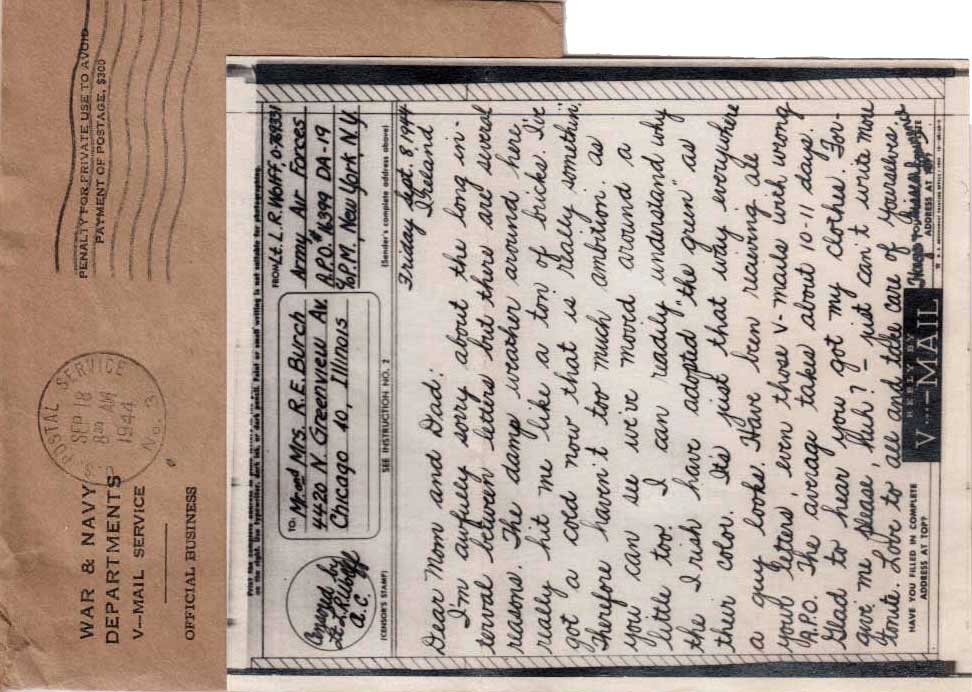 WAR & NAVY
DEPARTMENTS
V—MAIL SERVICE
OFFICIAL BUSINESS
U.S. POSTAL SERVICE
SEP 18
8 AM
1944
No. 3
PENALTY FOR PRIVATE USE TO AVOID
PAYMENT OF POSTAGE, $300
Censored by
Lt. L.R. Woff
A.C.
(CENSOR'S STAMP)
TO: Mr. and Mrs. R.E. Burch
4420 N. Greenview Av.
Chicago 40, Illinois
SEE INSTRUCTION NO. 2
FROM Lt. L.R. Woff 0-769331
Army Air Forces
A.P.O. # 16399 DA-19
% P.M., New York, N.Y.
(Sender's complete address above)
Friday Sept. 8, 1944
Ireland
Dear Mom and Dad:
I'm awfully sorry about the long in-
terval between letters but there are several
reasons. The damp weather around here
really hit me like a ton of bricks. I've
got a cold now that is really somethin'.
Therefore haven't too much ambition. as
you can see we've moved around a
little too. I can readily understand why
the Irish have adopted "the green" as
their color. It's just that way everywhere
a guy looks. Have been receiving all
your letters, even those V-mails with wrong
A.P.O. The averag takes about 10-11 days.
Glad to hear you got my clothes. For-
give me please, huh? - just can't write more
tonite. Love to all and take care of yourselves.
HAVE YOU FILLED IN COMPLETE
ADDRESS AT TOP?
REPLY BY
V···—MAIL
HAVE YOU FILLED IN COMPLETE
ADDRESS AT TOP?